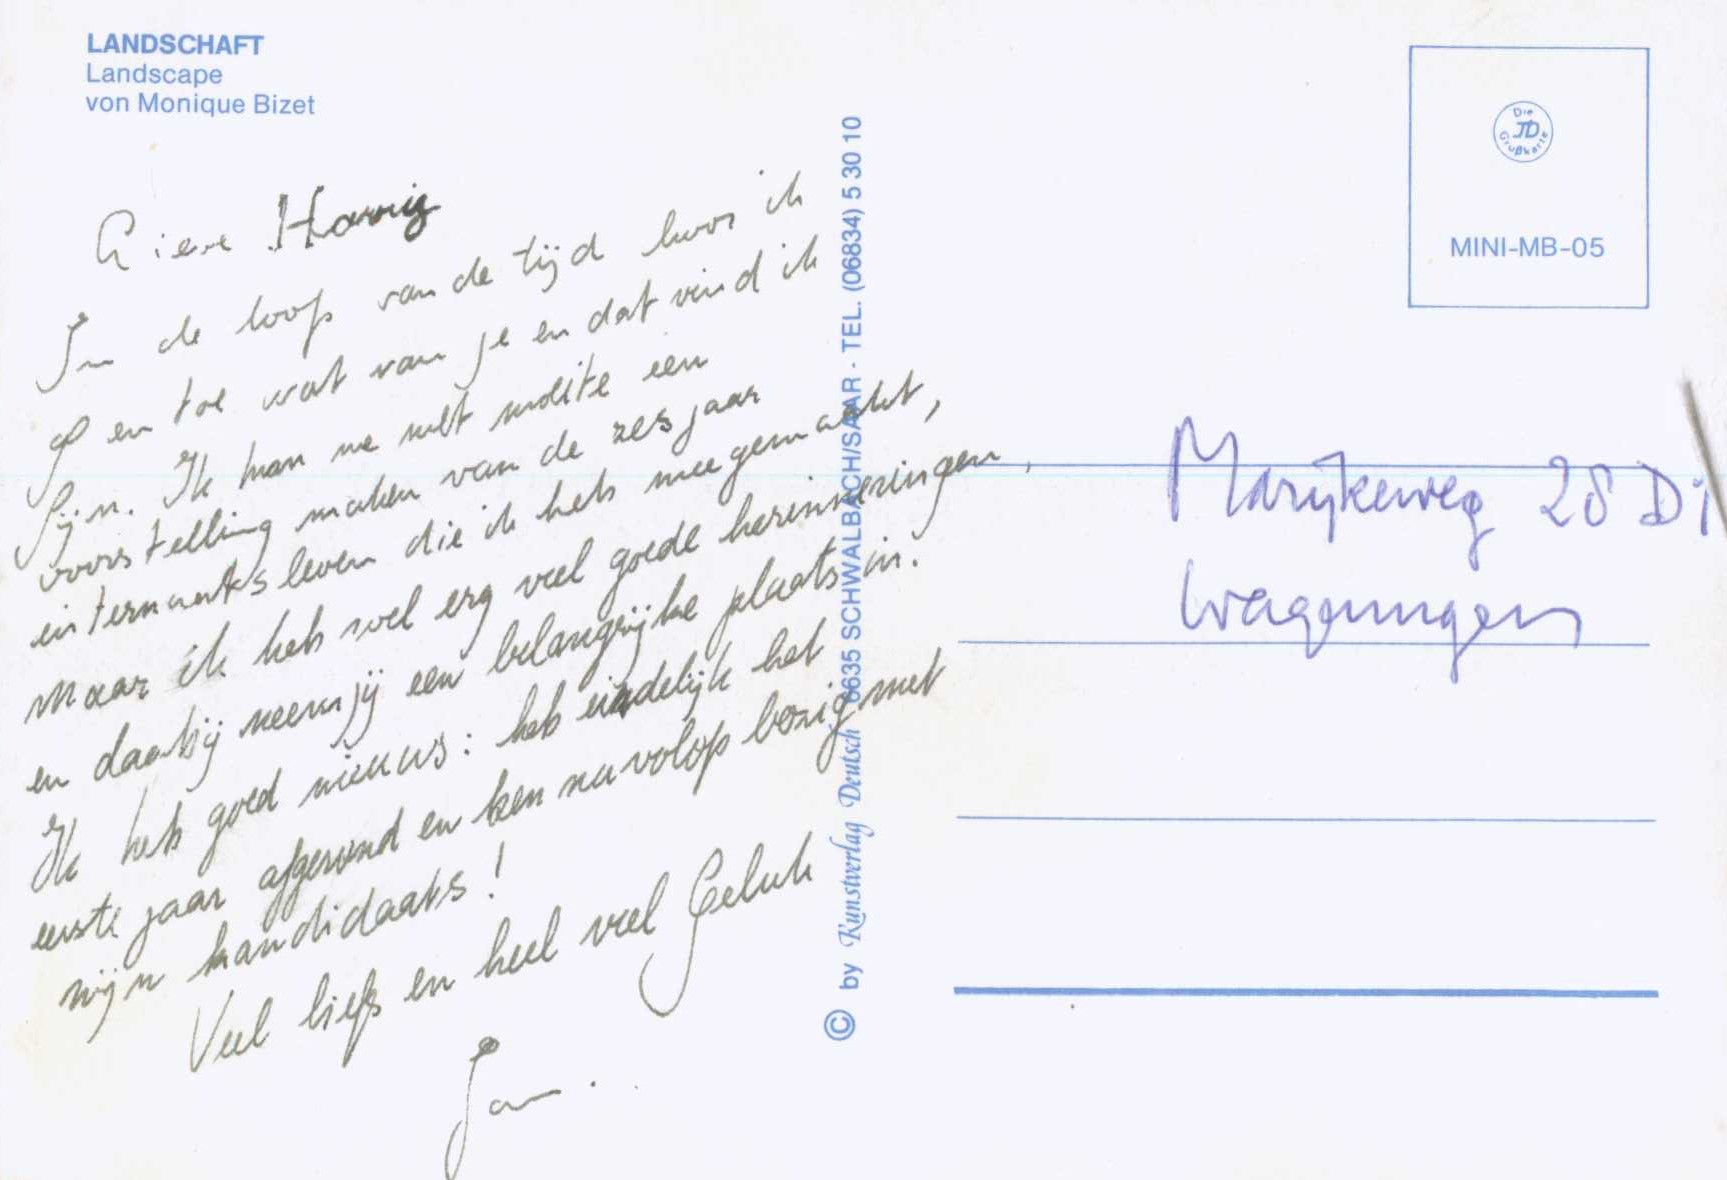 LANDSCHAFT
Landscape
von Monique Bizet
Lieve
In de loop van de tijd hoor ik
af en toe wat van je en dat vind ik
fijn. Ik kan me met moeite een
voorstelling maken van de zes jaar
internaatsleven die ik heb meegemaakt,
maar ik heb wel erg veel goede herinneringen,
en daarbij neem jij een belangrijke plaats in.
Ik heb goed nieuws: heb eindelijk het
eerste jaar afgerond en ben nu volop bezig met
mijn kandidaats!
Veel liefs en heel veel Geluk
Jan.
© by Kunstverlag Deutsch 6635 SCHWALBACH/SAAR - TEL. (06834) 5 30 10
Die
JD
Grußkarte
MINI-MB-05
Marijkeweg 28 D1
Wageningen